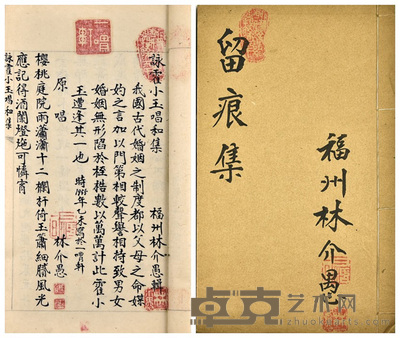 福州林介愚
留痕集
詠霍小玉唱和集
福州林介愚輯
我國古代婚姻之制度都以父母之命媒
妁之言加以門第相較聲譽相持致男女
婚姻無形陷於桎梏數以萬萬計此霍小
玉遭逢其一也
原唱
林介愚
櫻桃庭院雨瀟瀟十二欄杆倚玉簫細膩風光
應記得酒闌燈灺可憐宵
詠霍小玉唱和集
卓克艺术网